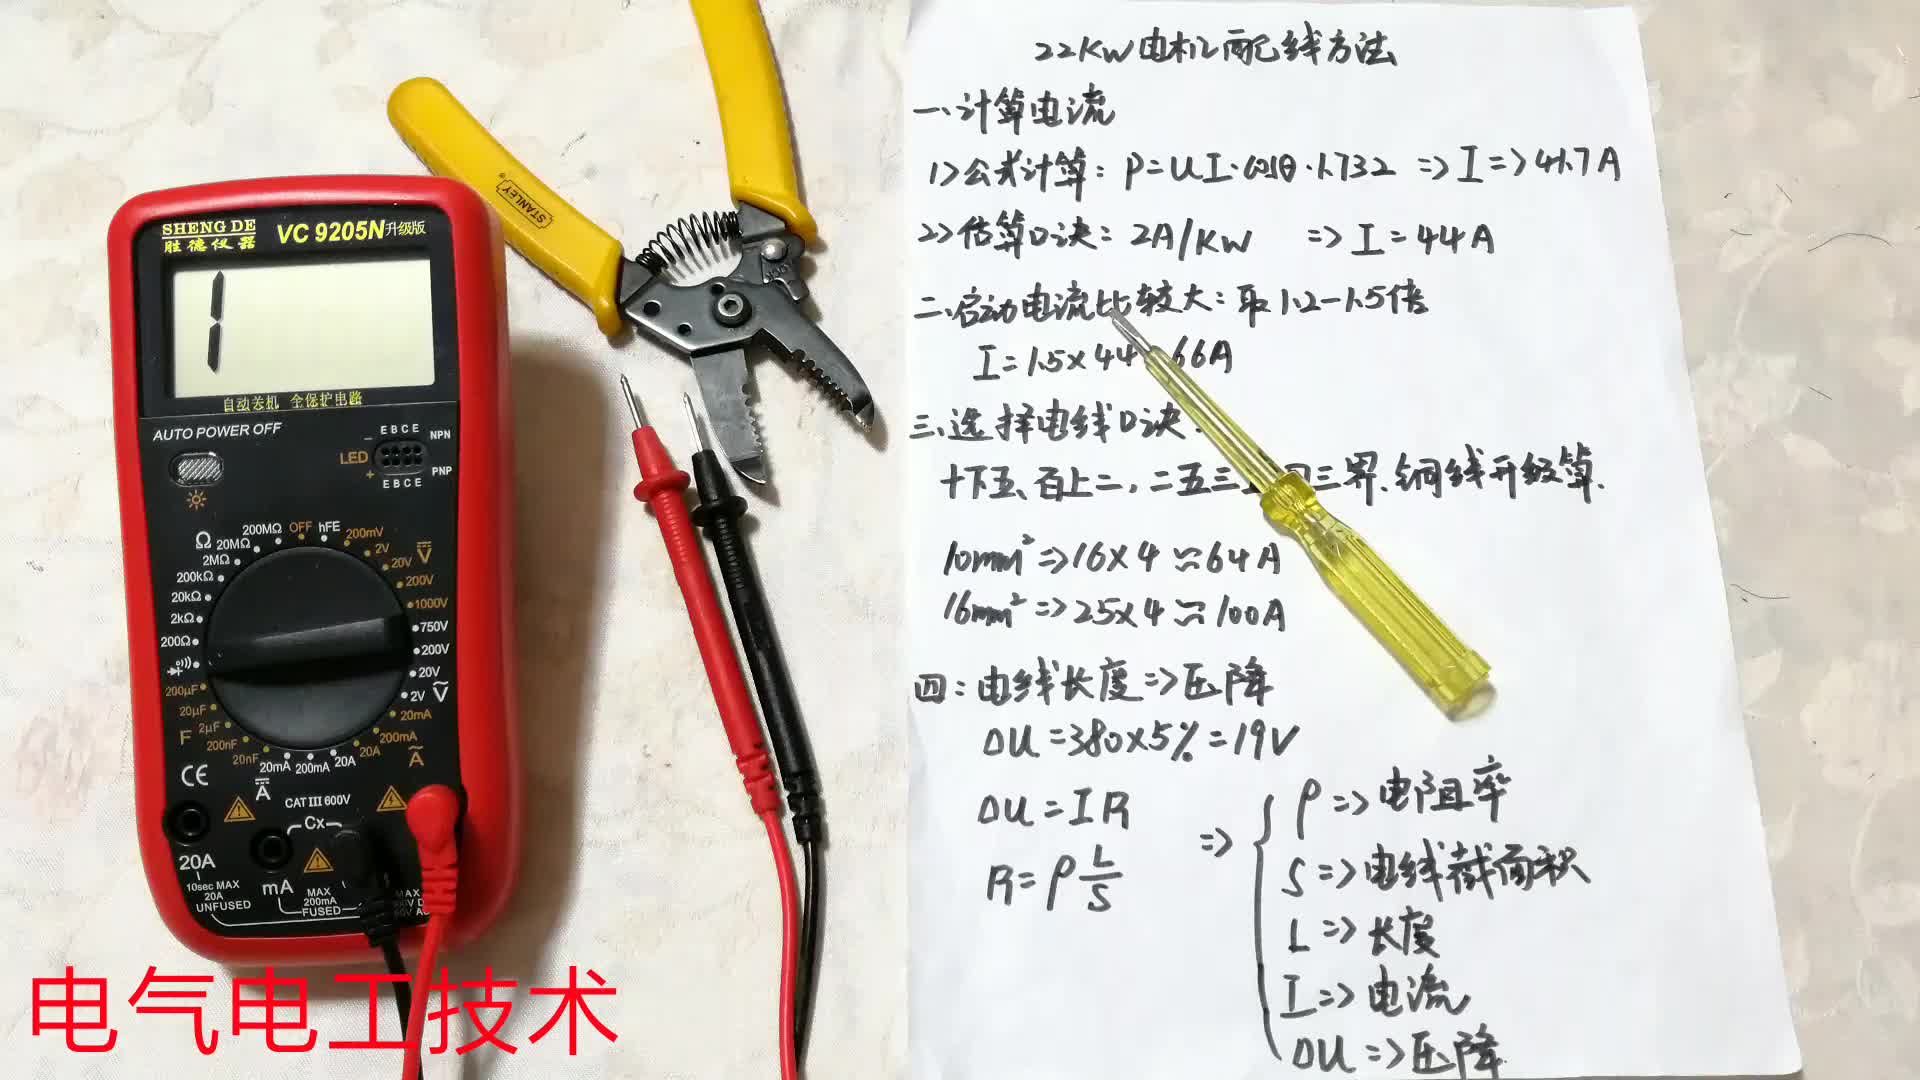 SHENG DE
胜德仪器
VC 9205N升级版
1
自动关机 全保护电路
AUTO POWER OFF
E B C E
NPN
LED
PNP
E B C E
Ω
200MΩ
OFF
hFE
20MΩ
2MΩ
200kΩ
20kΩ
2kΩ
200Ω
200mV
2V
20V
V
200V
1000V
750V
200V
20V
2V
V
200µF
20µF
2µF
F
200nF
20nF
20mA
200mA
20A
A
20mA
200mA
20A
A
CE
CAT III 600V
Cx
20A
10sec MAX
20A
UNFUSED
mA
MAX
200mA
FUSED
MAX
STANLEY
22KW电机配线方法
一、计算电流
1>公式计算：P=UI·cosθ·1.732 => I => 41.7A
2>估算口诀：2A/KW => I=44A
二、启动电流比较大：取1.2-1.5倍
I=1.5×44 66A
三、选择电线口诀：
十下五、百上二，二五三 四三界.铜线升级算.
10mm² => 16×4≈64A
16mm² => 25×4≈100A
四：电线长度=>压降
ΔU=380×5%=19V
ΔU=IR
R=ρL/S
=>
ρ=>电阻率
S=>电线截面积
L=>长度
I=>电流
ΔU=>压降
电气电工技术